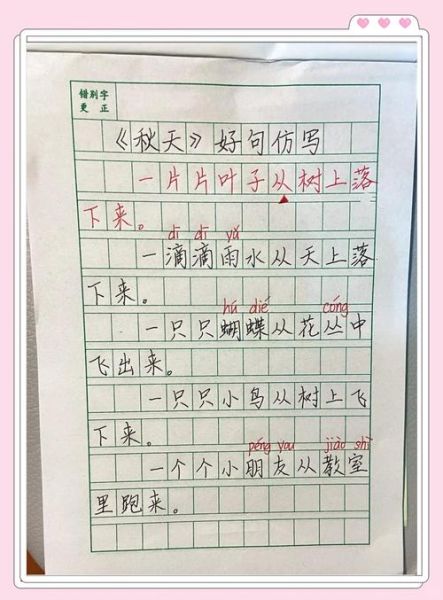 错别字
更正
《秋天》好句仿写
一片片叶子从树上落
下来。
dī dī yǔ
一滴滴雨水从天上落
下来。
hú dié cóng
一只只蝴蝶从花丛中
飞出来。
一只只小鸟从树上飞
下来。
péng you jiào shì
一个个小朋友从教室
里跑来。